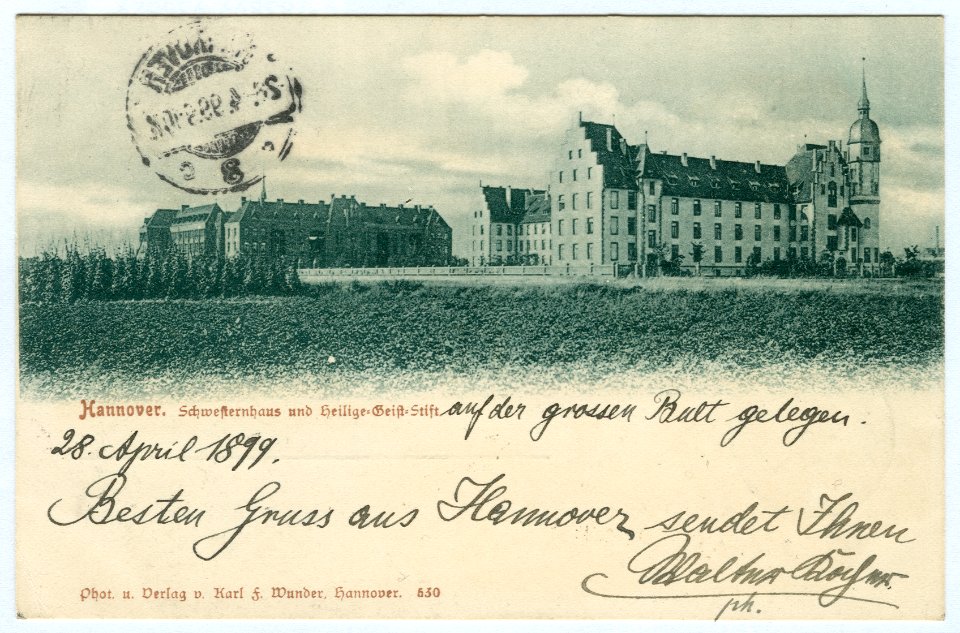 Hannover. Schwesternhaus und Heilige-Geist-Stift auf der grossen Bult gelegen.
28. April 1899.
Besten Gruss aus Hannover sendet Ihnen
Walter
ph.
Phot. u. Verlag v. Karl F. Wunder, Hannover. 630